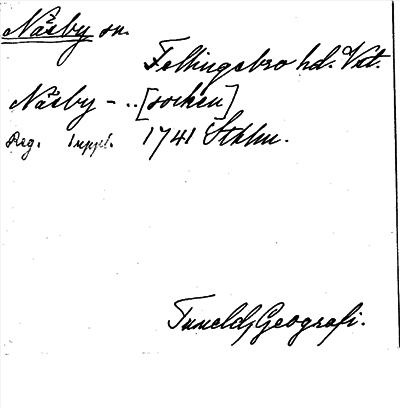 Näsby sn.
Fellingsbro hd. Vstm.
Näsby - .. [socken]
Reg. Suppl. 1741 Sthlm.
Tunelds Geografi.